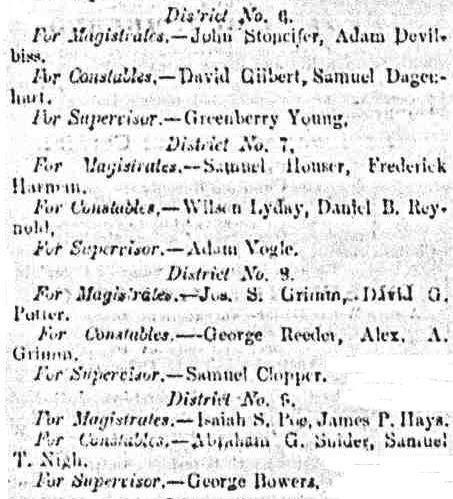 District No. 6.
For Magistrates.—John Stoneifer, Adam Devil-
biss.
For Constables,—David Gilbert, Samuel Dagen-
hart.
For Supervisor.—Greenberry Young.
District No. 7.
For Magistrates.—Samuel Houser, Frederick
Harman.
For Constables,—Wilson Lyday, Daniel B. Rey-
nold,
For Supervisor.—Adam Vogle.
District No.
For Magistrates.—Jos. S. Grimm, David G.
Potter.
For Constables.—George Reeder, Alex. A.
Grimm.
For Supervisor.—Samuel Clopper.
District No.
For Magistrates.—Isaiah S. Poe, James P. Hays.
For Constables.—Abraham G. Snider, Samuel
T. Nigh.
For Supervisor.—George Bowers.